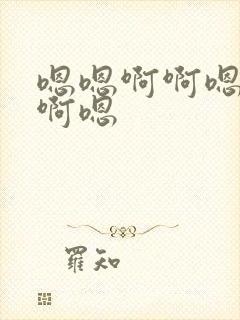 嗯嗯啊啊嗯
啊嗯
羅知